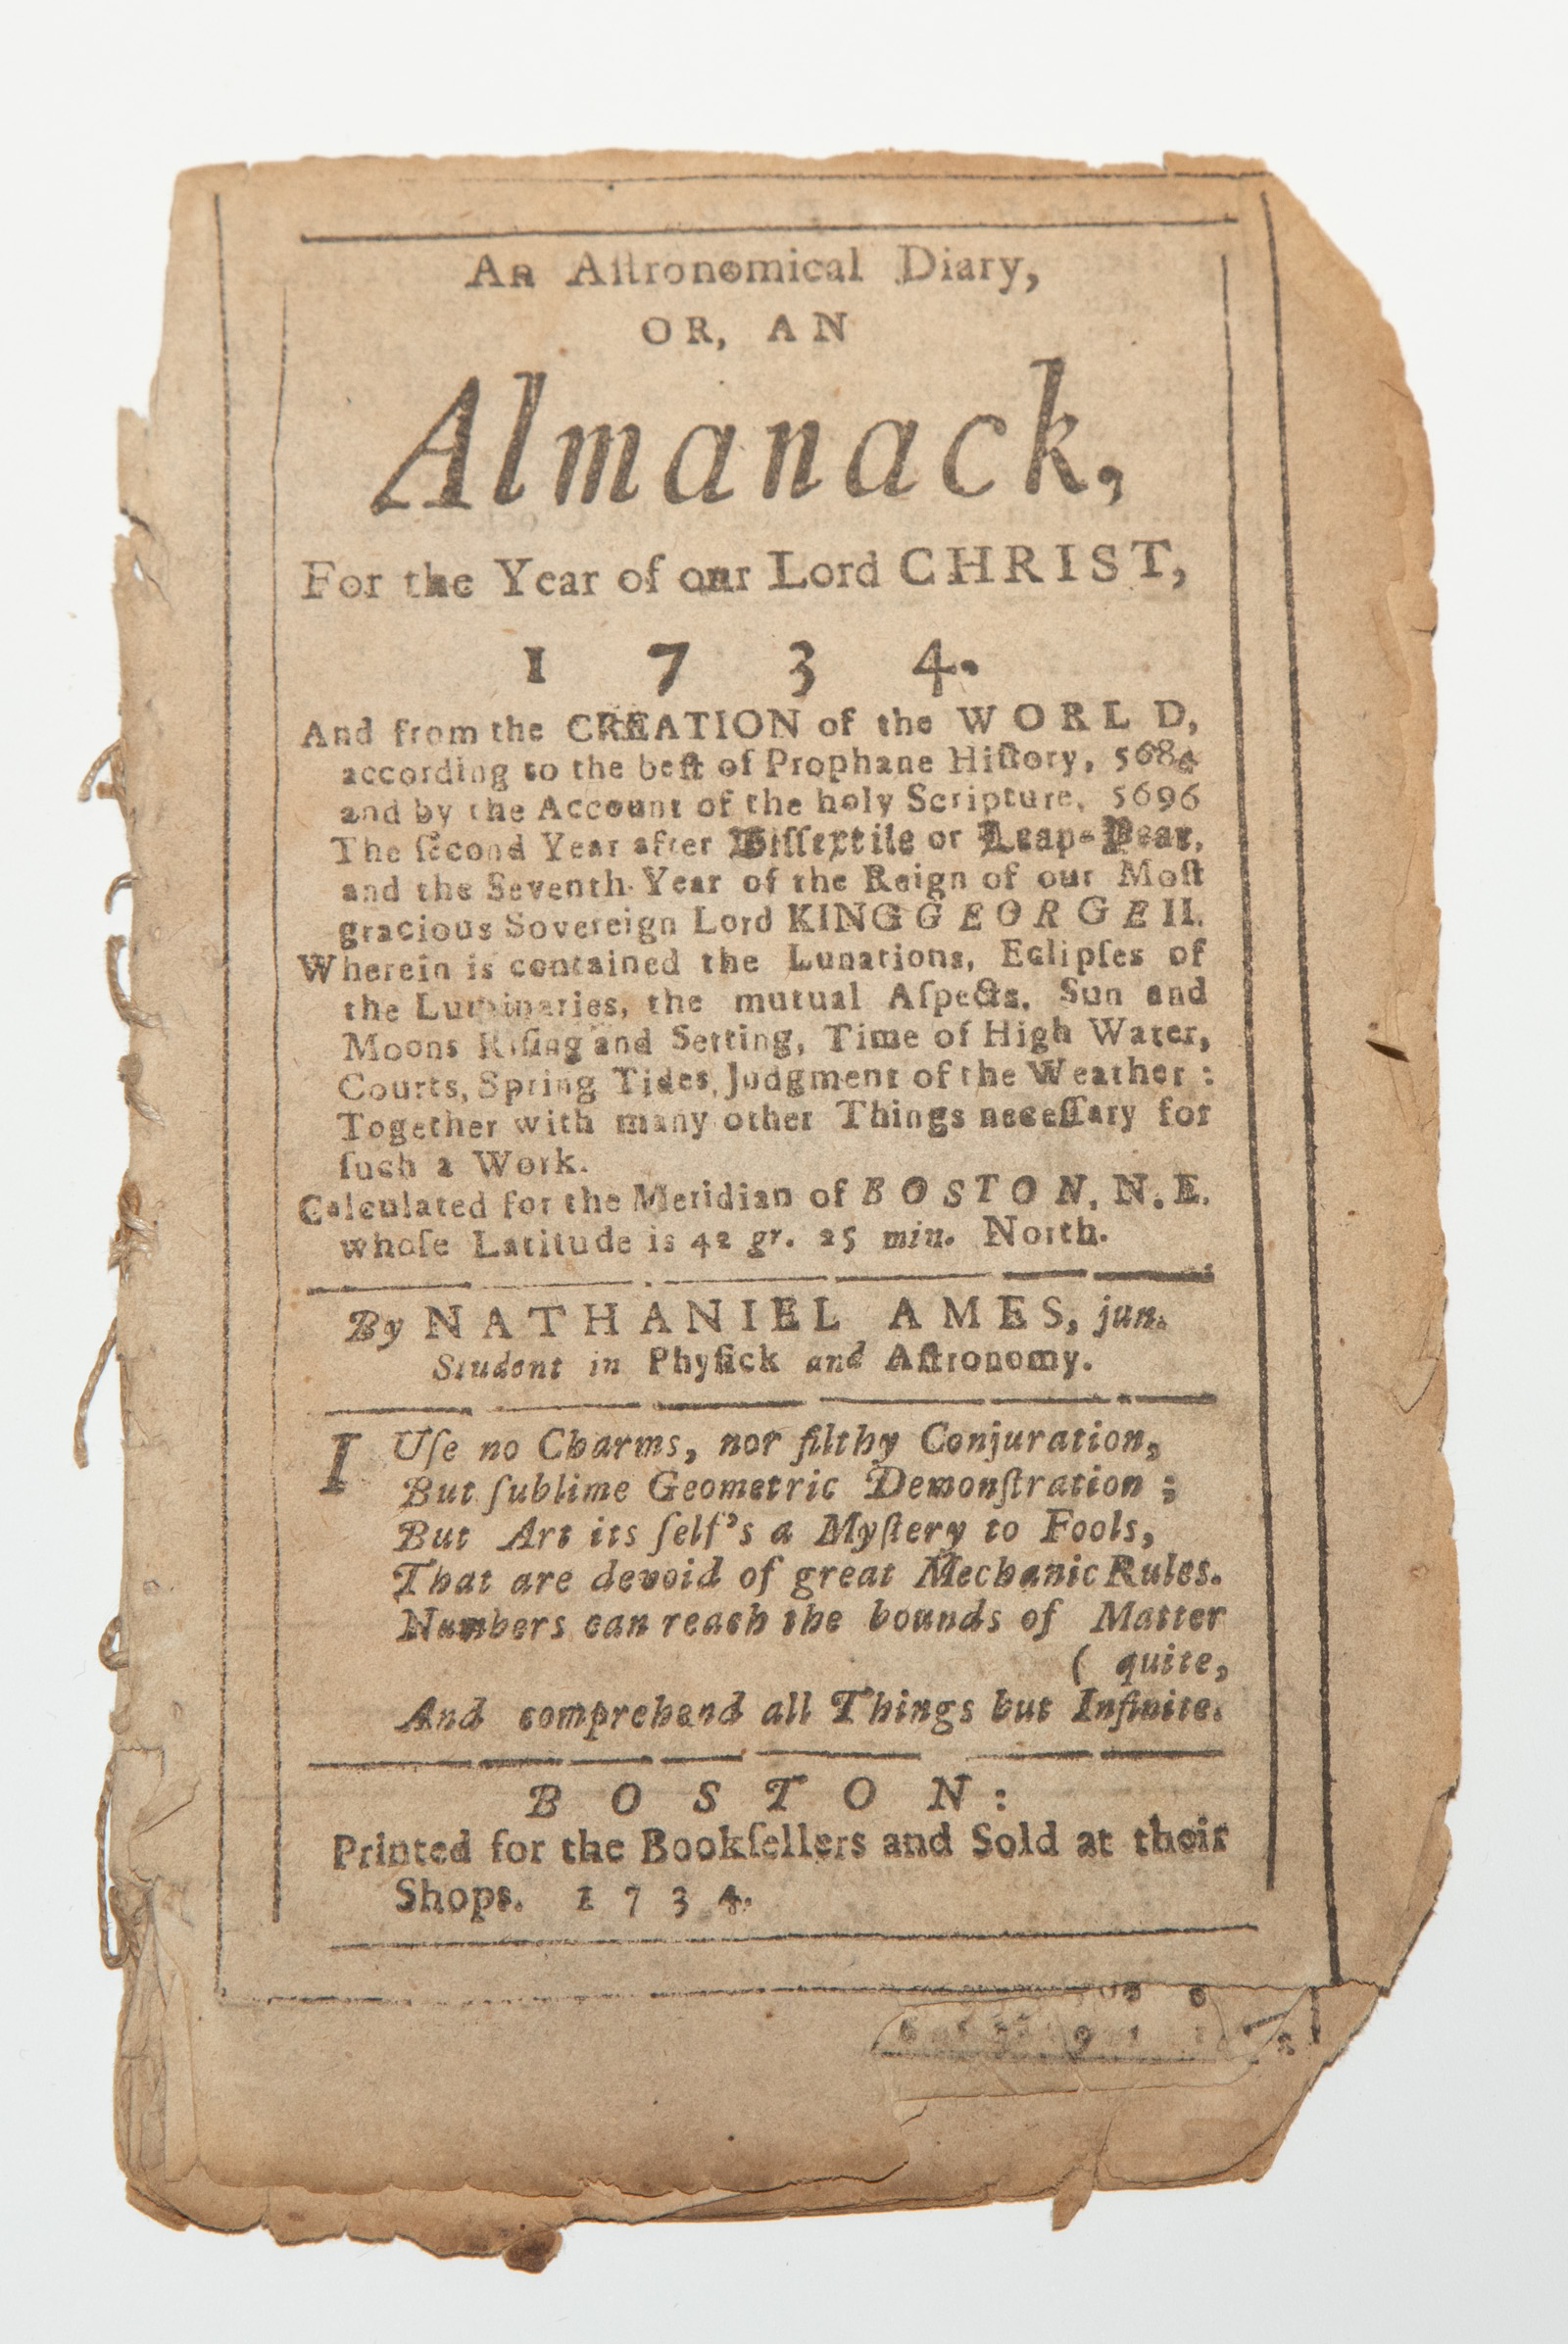 An Aſtronomical Diary,
OR, AN
Almanack,
For the Year of our Lord CHRIST,
1 7 3 4.
And from the CREATION of the WORLD,
according to the beſt of Prophane Hiſtory, 5684
and by the Account of the holy Scripture, 5696
The ſecond Year after Biſſextile or Leap-Year,
and the Seventh Year of the Reign of our Moſt
gracious Sovereign Lord KING GEORGE II.
Wherein is contained the Lunations, Eclipſes of
the Luminaries, the mutual Aſpects, Sun and
Moons Riſing and Setting, Time of High Water,
Courts, Spring Tides, Judgment of the Weather :
Together with many other Things neceſſary for
ſuch a Work.
Calculated for the Meridian of BOSTON, N.E.
whoſe Latitude is 42 gr. 25 min. North.
By NATHANIEL AMES, jun.
Student in Phyſick and Aſtronomy.
I Uſe no Charms, nor filthy Conjuration,
But ſublime Geometric Demonſtration ;
But Art its ſelf's a Myſtery to Fools,
That are devoid of great Mechanic Rules.
Numbers can reach the bounds of Matter
( quite,
And comprehend all Things but Infinite.
BOSTON:
Printed for the Bookſellers and Sold at their
Shops. 1 7 3 4.